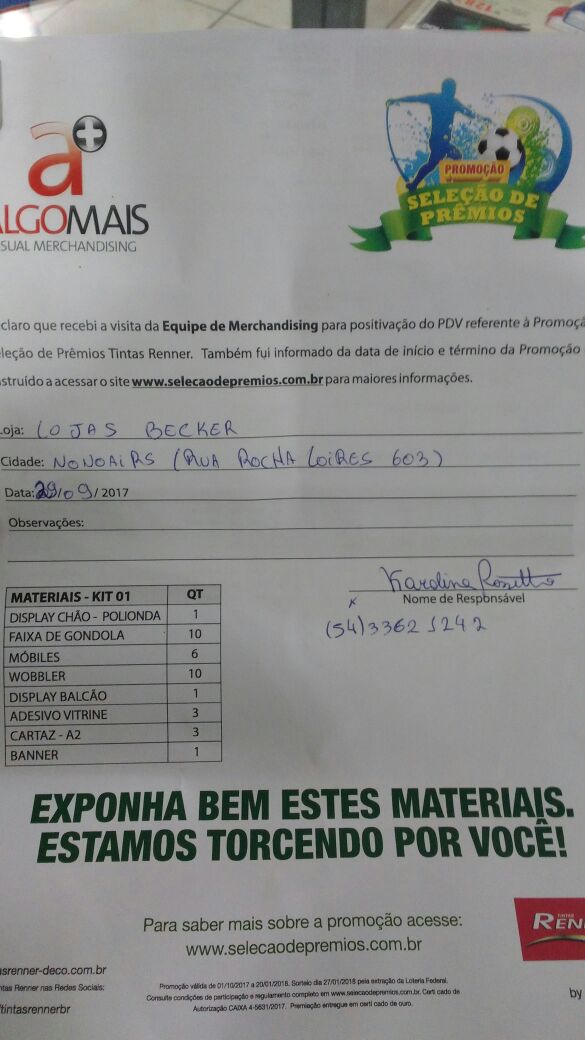 a+
ALGOMAIS
SUAL MERCHANDISING
PROMOÇÃO
SELEÇÃO DE
PRÊMIOS
claro que recebi a visita da Equipe de Merchandising para positivação do PDV referente à Promoçã
leção de Prêmios Tintas Renner. Também fui informado da data de início e término da Promoção
struído a acessar o site www.selecaodepremios.com.br para maiores informações.
Loja: LOJAS BECKER
Cidade: NONOAIRS (RUA ROCHA LOIRES 603)
Data: 29/09/2017
Observações:
Karolina Rosetto
Nome de Responsável
x
(54) 3362 1242
MATERIAIS - KIT 01 QT
DISPLAY CHÃO - POLIONDA 1
FAIXA DE GONDOLA 10
MÓBILES 6
WOBBLER 10
DISPLAY BALCÃO 1
ADESIVO VITRINE 3
CARTAZ - A2 3
BANNER 1
EXPONHA BEM ESTES MATERIAIS.
ESTAMOS TORCENDO POR VOCÊ!
Para saber mais sobre a promoção acesse:
www.selecaodepremios.com.br
TINTAS
RENN
by
asrenner-deco.com.br
ntas Renner nas Redes Sociais:
/tintasrennerbr
Promoção válida de 01/10/2017 a 20/01/2018. Sorteio dia 27/01/2018 pela extração da Loteria Federal.
Consulte condições de participação e regulamento completo em www.selecaodepremios.com.br. Certi cado de
Autorização CAIXA 4-5631/2017. Premiação entregue em certi cado de ouro.